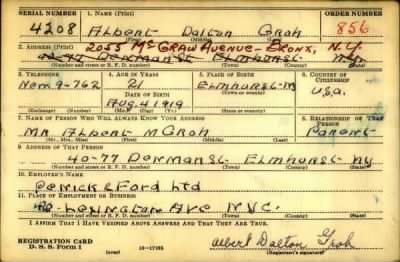 SERIAL NUMBER 1. NAME (Print) ORDER NUMBER
4208 Albert Dalton Groh 856
(First) (Middle) (Last)
2. ADDRESS (Print) 2055 McGraw Avenue - Bronx, N.Y.
Denman St Elmhurst N.Y.
(Number and street or R. F. D. number) (Town) (County) (State)
3. TELEPHONE 4. AGE IN YEARS 5. PLACE OF BIRTH 6. COUNTRY OF CITIZENSHIP
New. 9-762 21 Elmhurst
DATE OF BIRTH (Town or county)
Aug. 4 1919 U.S.A.
(Exchange) (Number) (Mo.) (Day) (Yr.) (State or country)
7. NAME OF PERSON WHO WILL ALWAYS KNOW YOUR ADDRESS 8. RELATIONSHIP OF THAT PERSON
Mr Albert M Groh Parent
(Mr., Mrs., Miss) (First) (Middle) (Last)
9. ADDRESS OF THAT PERSON
40-77 Denman St Elmhurst NY
(Number and street or R. F. D. number) (Town) (County) (State)
10. EMPLOYER'S NAME
Penick & Ford Ltd
11. PLACE OF EMPLOYMENT OR BUSINESS
Lexington Ave N.Y.C.
(Number and street or R. F. D. number) (Town) (County) (State)
I AFFIRM THAT I HAVE VERIFIED ABOVE ANSWERS AND THAT THEY ARE TRUE.
REGISTRATION CARD Albert Dalton Groh
D. S. S. Form 1 16-17105 (Registrant's signature)